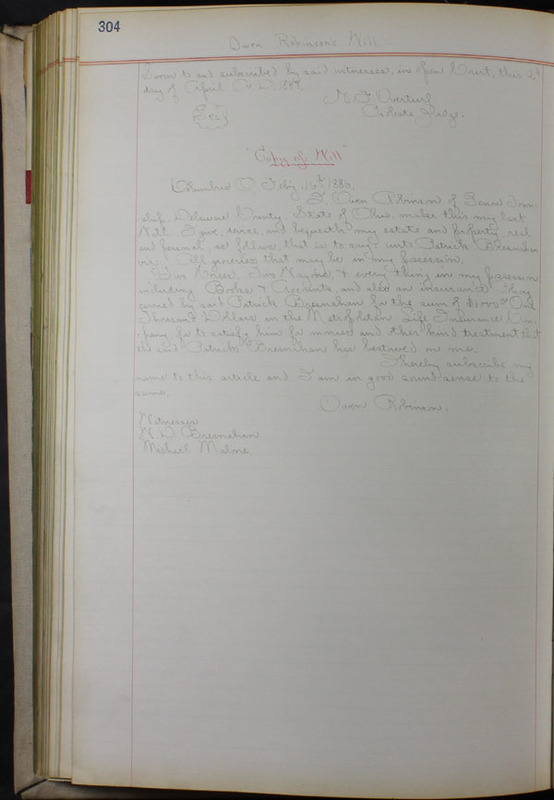 304
Owen Robinson's Will
Sworn to and subscribed by said witnesses, in open Court, this 2d
day of April A.D. 1887.
Probate Judge.
"Copy of Will"
Columbus O. Feby. 1886.
I, Owen Robinson of Genoa Town-
ship, Delaware County, State of Ohio, make this my last
Will. I give, devise, and bequeath my estate and property, real
or personal, as follows, that is to say: unto Patrick Bresnahan
viz: All groceries that may be in my possession.
Two Wagons, & every thing in my possession
including Books & Accounts, and also an insurance Policy
carried by said Patrick Bresnahan for the sum of $1000 One
Thousand Dollars in the Metropolitan Life Insurance Com-
pany for to satisfy him for monies and other kind treatment that
the said Patrick Bresnahan has bestowed on me.
I hereby subscribe my
name to this article and I am in good sound sense to the
same.
Owen Robinson.
Witnesses
Bresnahan
Michael Malone